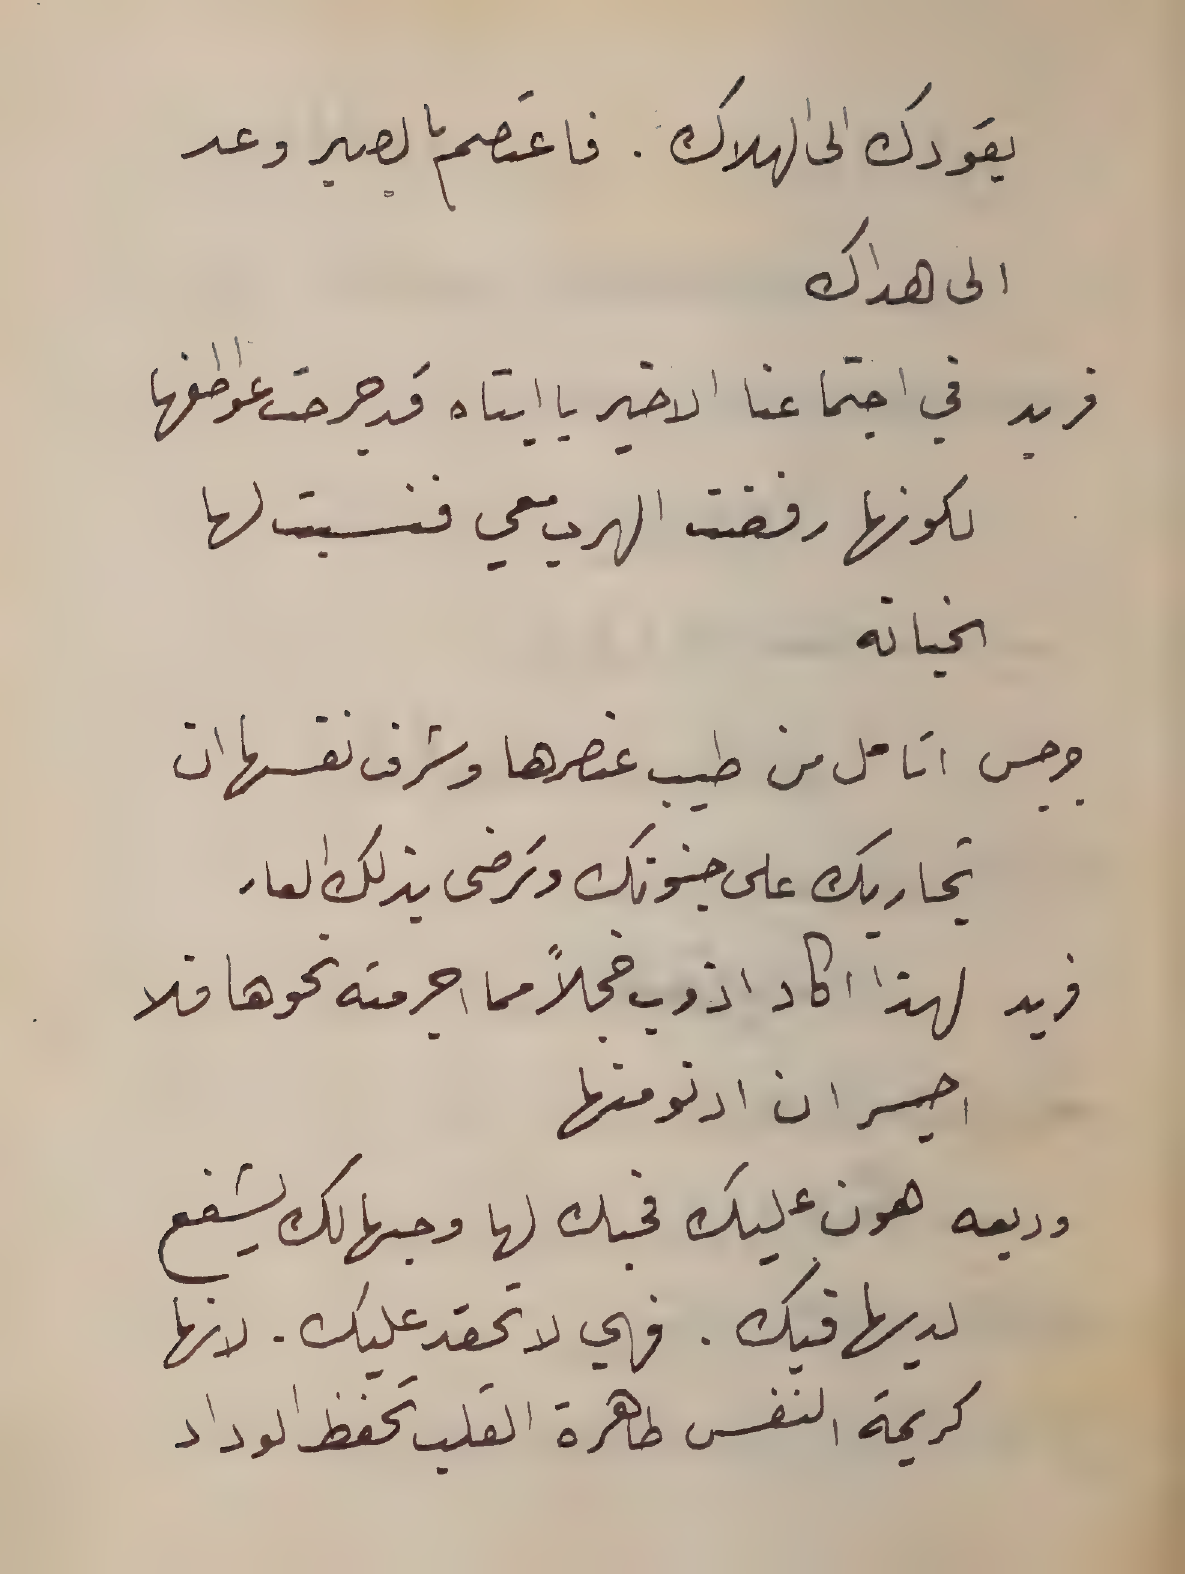 يقودك الى الهلاك . فاعتصم بالصبر وعد
الى هداك
فريد في اجتماعنا الاخير يا ابتاه قد جرحت عواطفها
لكونها رفضت الهرب معي فنسبت لها
الخيانه
جرجس اتامل من طيب عنصرها وشرف نفسها ان
تجاريك على جنونك وترضى بذلك العار
فريد لهذا اكاد اذوب خجلاً مما اجرمته نحوها فلا
اجسر ان ادنو منها
وديعه هون عليك فحبك لها وحبها لك يشفع
لديها فيك . فهي لا تحقد عليك . لانها
كريمة النفس طاهرة القلب تحفظ الوداد